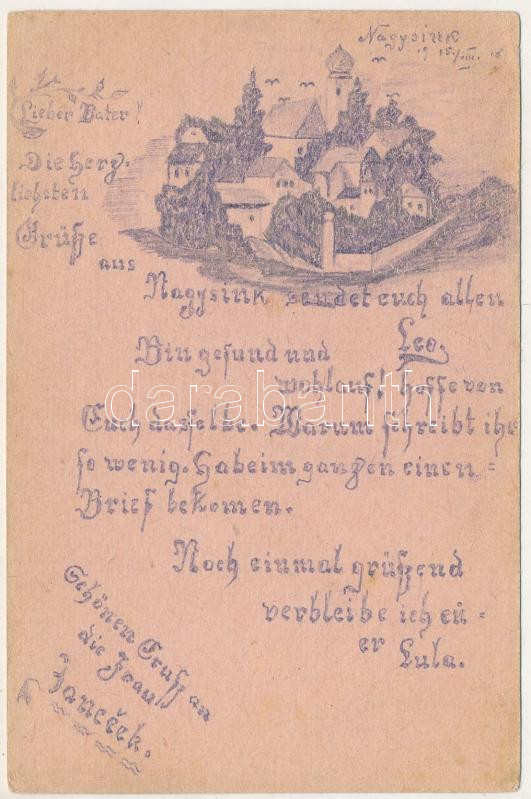 Nagysink
Lieber Vater!
Die herz-
lichsten
Grüße
aus
Nagysink sendet euch allen
Leo.
Bin gesund und
wohlauf, hoffe von
Euch dasselbe. Warum schreibt ihr
so wenig. Habe im ganzen einen=
Brief bekomen.
Noch einmal grüßend
verbleibe ich eu-
er
Lula.
Schönen Gruß an
die Frau
Janeček.
darabanth